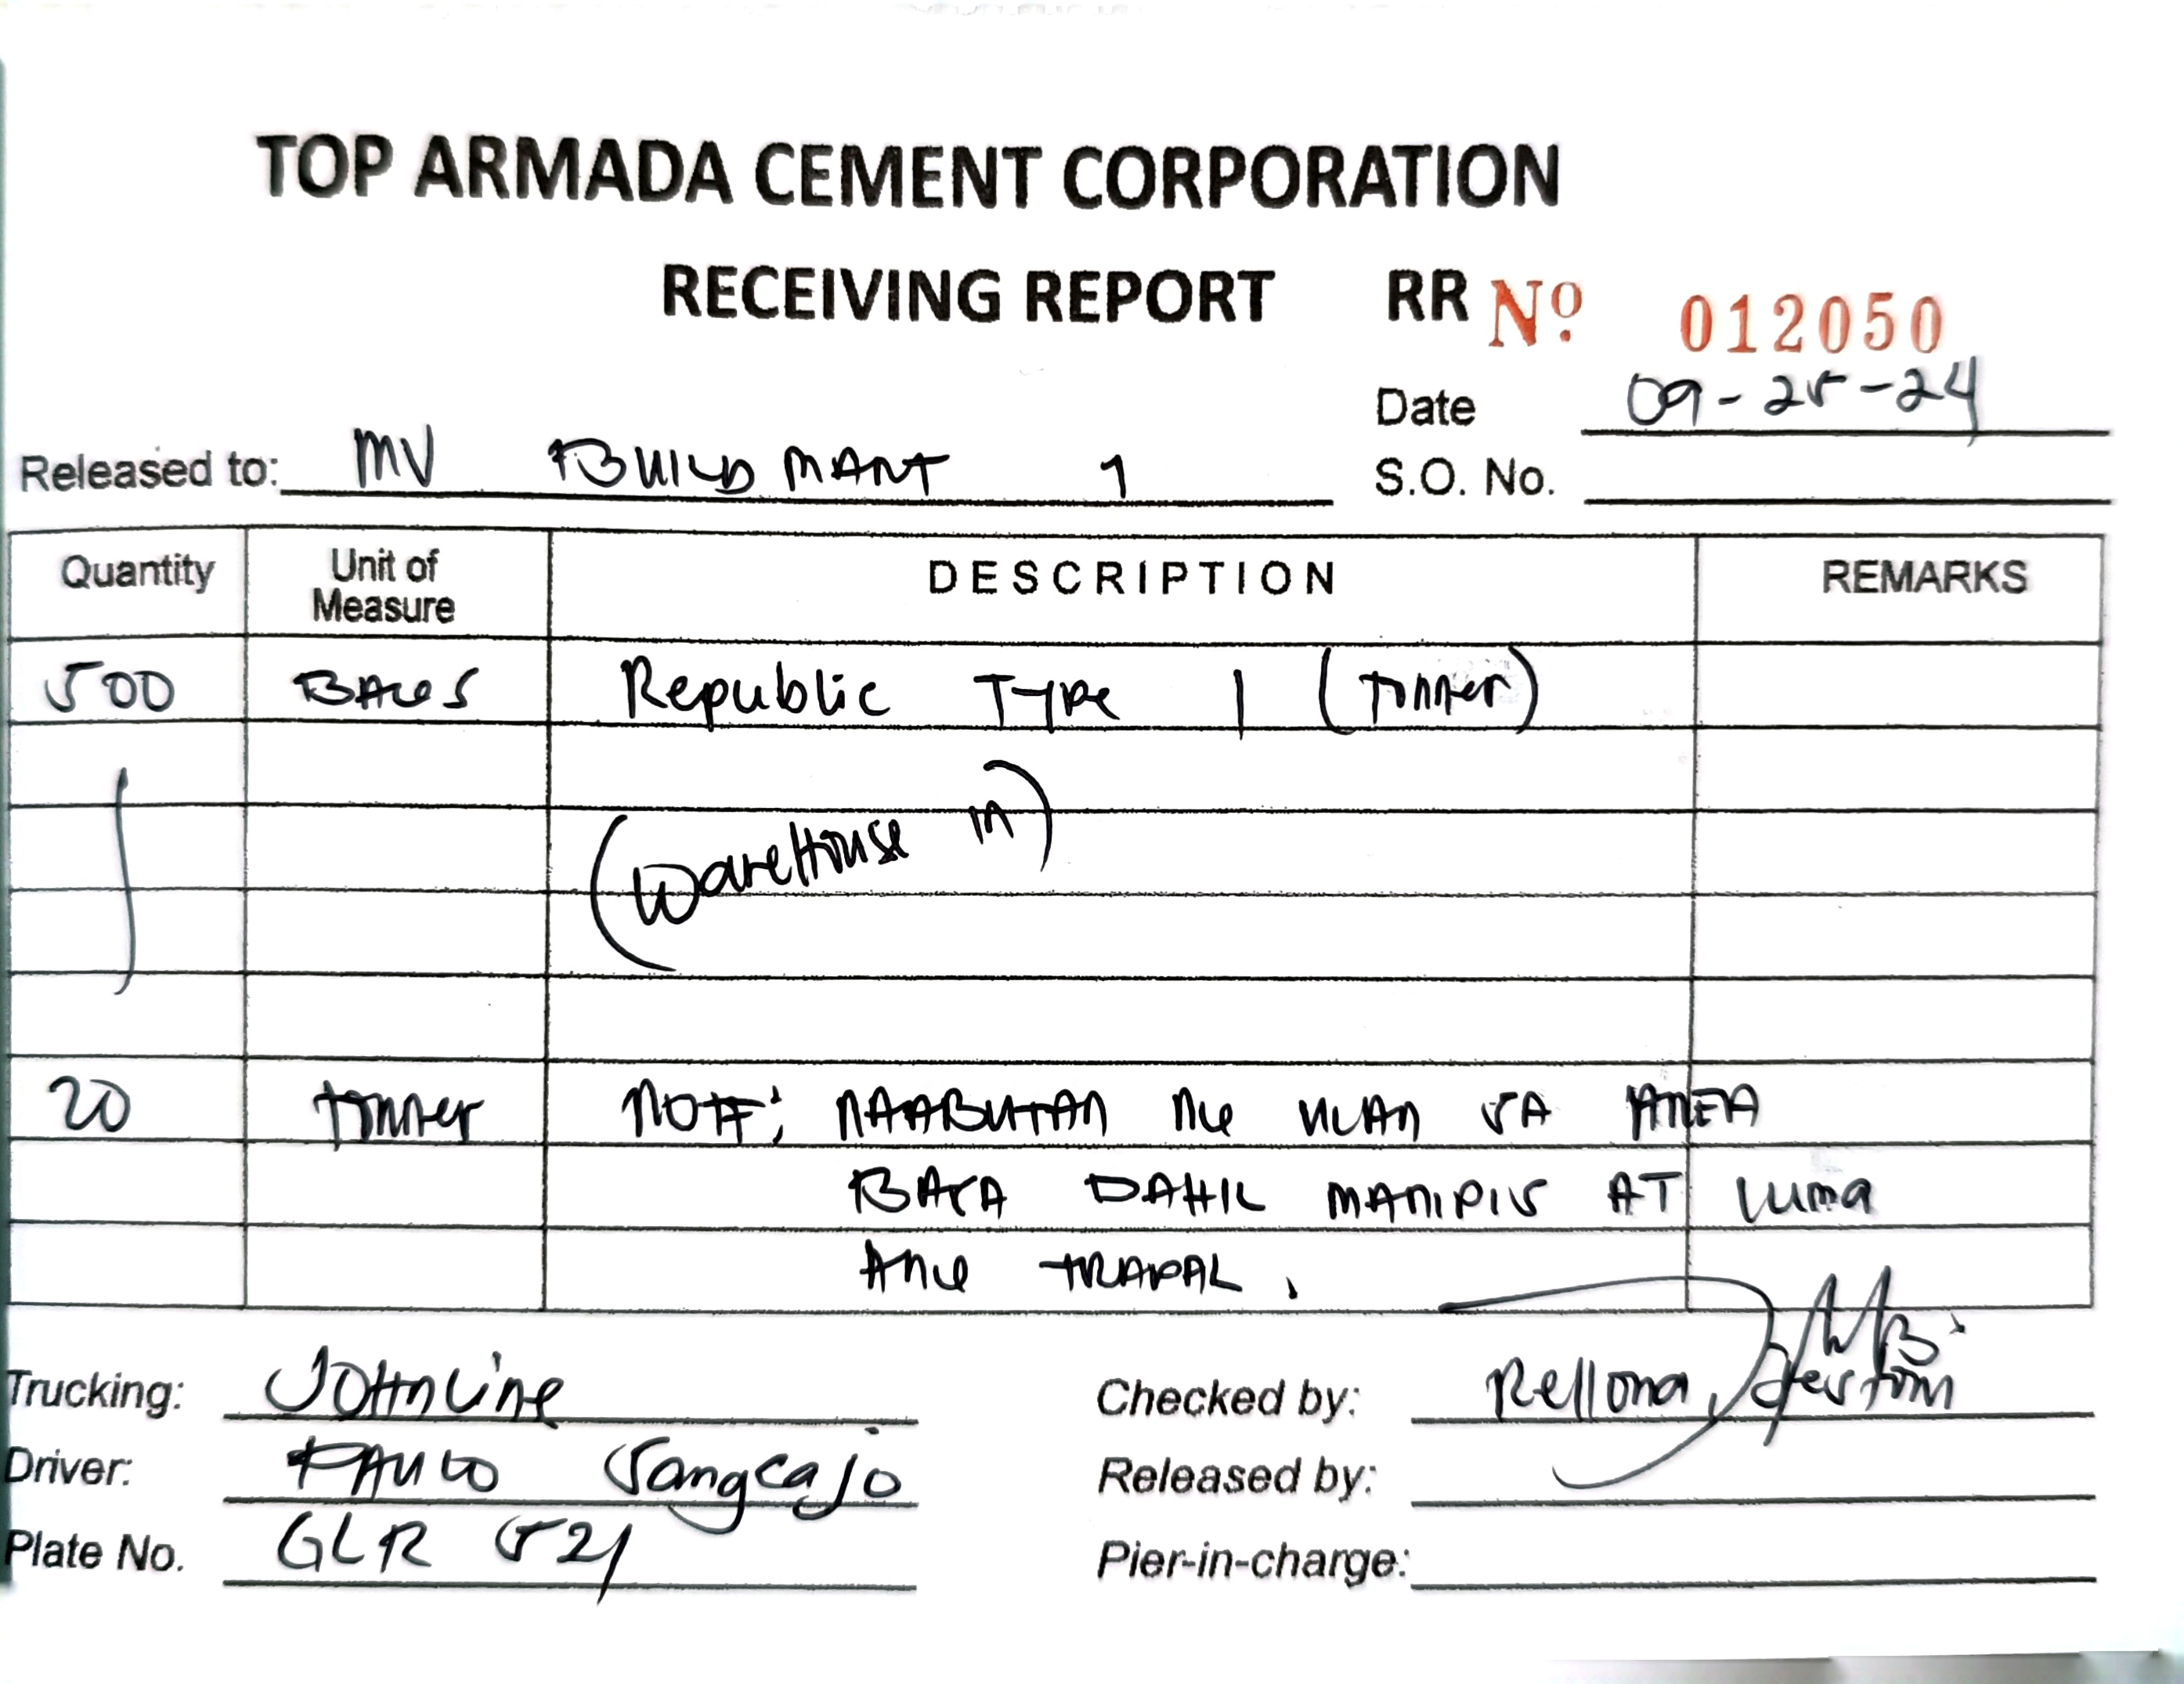 TOP ARMADA CEMENT CORPORATION
RECEIVING REPORT RR Nº 012050
Date 09-25-24
Released to: MV BUILD MART 1
S.O. No.
Quantity Unit of Measure DESCRIPTION REMARKS
500 BAGS Republic TYPE 1 (TONNER)
(WareHouse IN)
20 TONNER NOTE: NAABUTAN NG ULAN SA AREA
BASA DAHIL MANIPIS AT LUMA
ANG TRAPAL.
Trucking: JOHNLINE
Checked by: Rellona,
Driver: PAULO Sangcajo
Released by:
Plate No. GLR 521
Pier-in-charge: